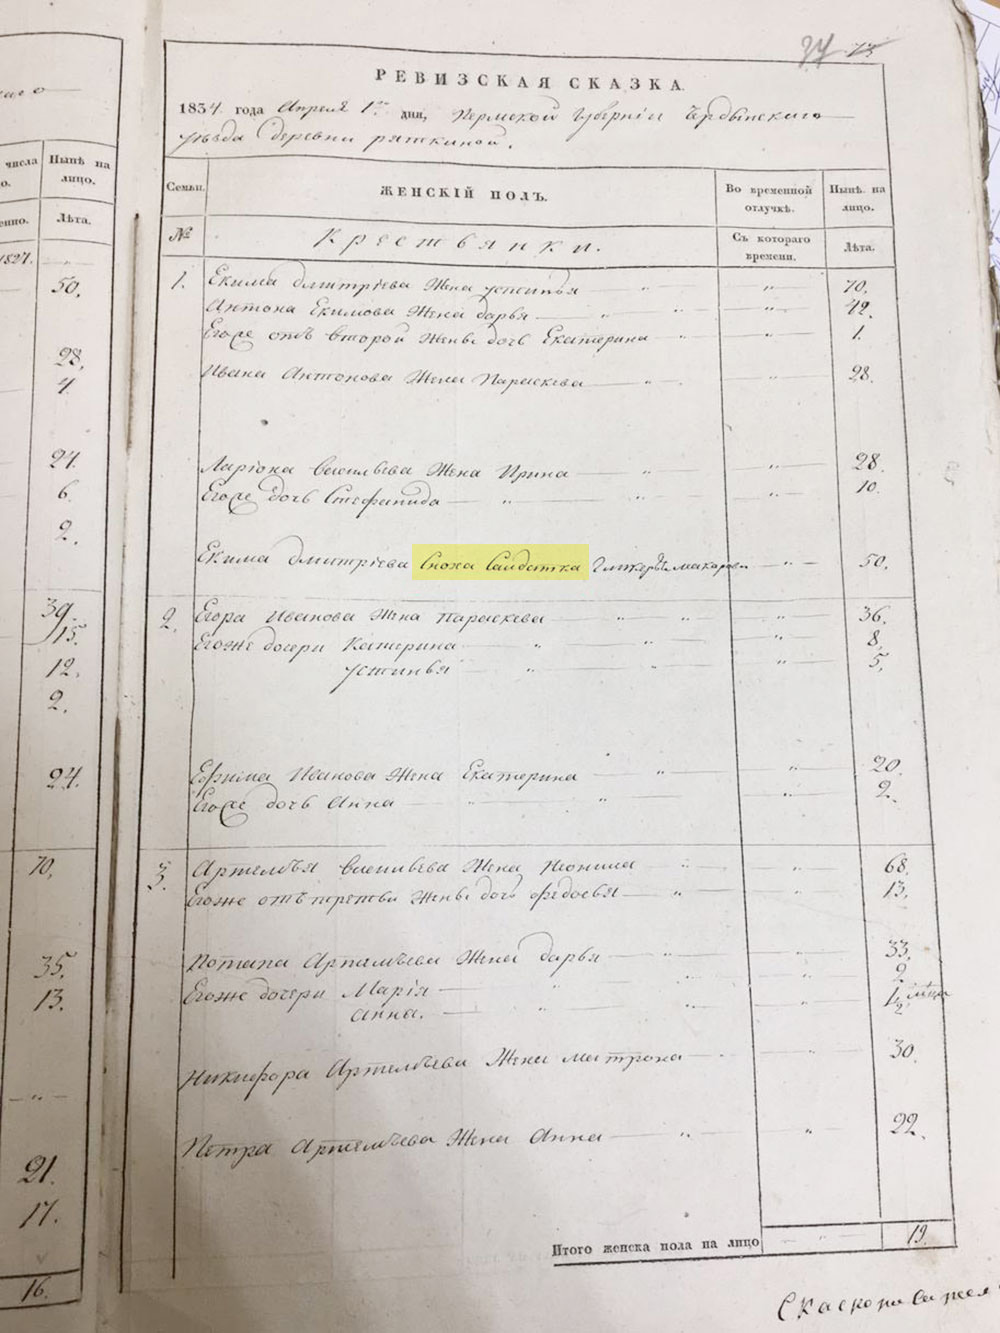 37 73
РЕВИЗСКАЯ СКАЗКА.
1834 года Апреля 1го дня, Пермской Губернии Чердынского
уѣзда Деревни ряткиной.
Семьи. ЖЕНСКІЙ ПОЛЪ. Во временной отлучкѣ. Нынѣ на лицо.
№ Крестьянки. Съ котораго времени. Лѣта.
числа Нынѣ на лицо.
Лѣта.
1827.
1. Екима дмитріева Жена устинья — „ 70.
Антона Екимова Жена дарья — „ 42.
Егоже отъ второй Жены дочь Екатерина „ 1.
Ивана Антонова Жена Параскева — „ 28.
Ларіона васильева Жена Ирина — „ 28.
Егоже дочь Стефанида — „ 10.
Екима дмитріева Сноха Салдатка Гликерья макарова — „ 50.
2. Егора Иванова Жена параскева — „ 36.
Егоже дочери Катерина — „ 8.
устинья — „ 5.
Ефима Иванова Жена Екатерина — „ 20.
Егоже дочь Анна — „ 2.
3. Артемья васильева Жена Неонила — „ 68.
Егоже отъ третьи Жены дочь федосья — „ 13.
Потапа Артемьева Жена дарья — „ 33.
Егоже дочери Марія — „ 9.
анна. — „ 1/2 мѣца
Никифора Артемьева Жена матрона — „ 30.
Петра Артемьева Жена Анна — „ 22.
Итого женска пола на лицо 19.
50.
28.
4.
24.
6.
2.
39.
15.
12.
2.
24.
70.
35.
13.
21.
17.
16.